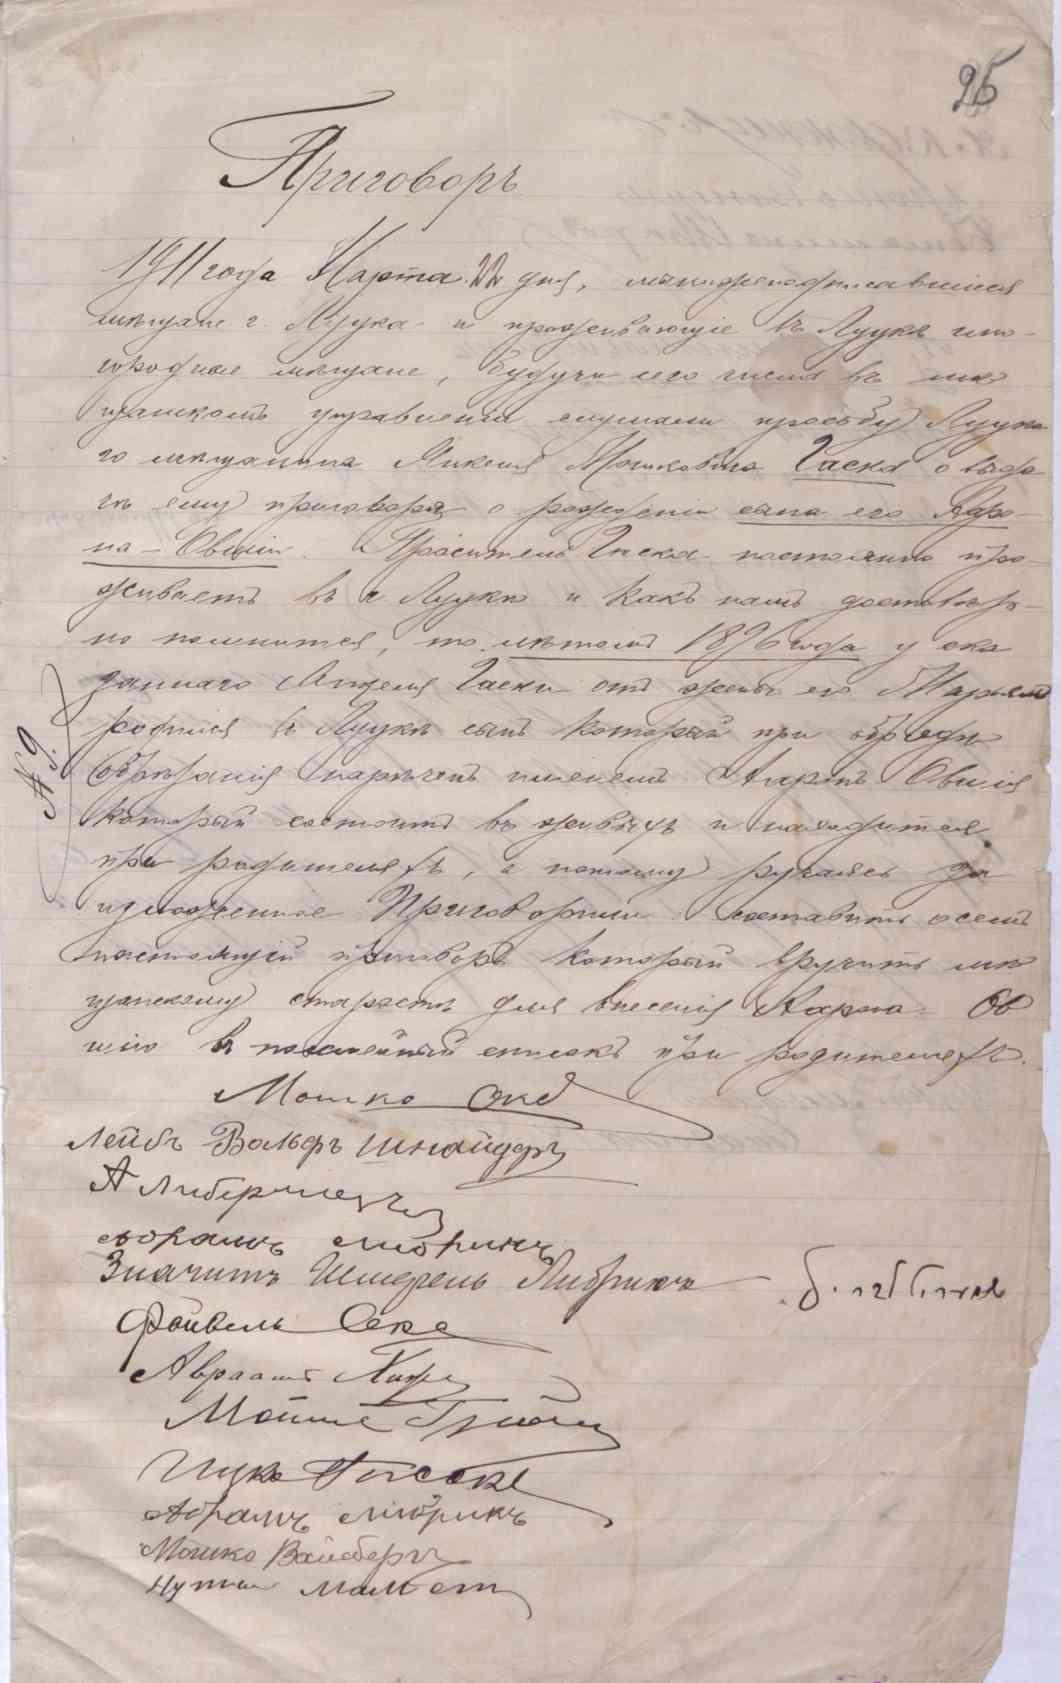 25
Приговоръ
1911 года Марта 22 дня, мы нижеподписавшіеся
мѣщане г. Луцка и проживающіе въ Луцкѣ ино-
городные мѣщане, будучи сего числа въ мѣ
щанскомъ управленіи слушали просьбу Луцка
го мѣщанина Мошковича Гаска о выда
чѣ ему приговора о рожденіи сына его Ааро-
на-Овшія. Проситель Гаска постоянно про
живаетъ въ г. Луцкѣ и какъ намъ достовѣр-
но помнится, то лѣтомъ 1896 года у ска
заннаго Гаски отъ жены его Марьемъ
родился въ Луцкѣ сынъ который при обрядѣ
обрѣзанія нареченъ именемъ Ааронъ Овшія
который состоитъ въ живыхъ и находится
при родителяхъ, а потому ручаясь за
изложенное Приговорили: составить о семъ
настоящій приговоръ который вручить мѣ
щанскому старостѣ для внесенія Аарона Ов
шію въ посемейный списокъ при родителяхъ.
№ 9.
Мошко
Лейбъ Вольфъ Шнайдеръ
А
Абрамъ Либрихъ
Значитъ Шмерель Либрихъ
Файвель Секе
Авраамъ
Мойше
Ицко
Абрамъ Либрихъ
Мошко Вайсбергъ